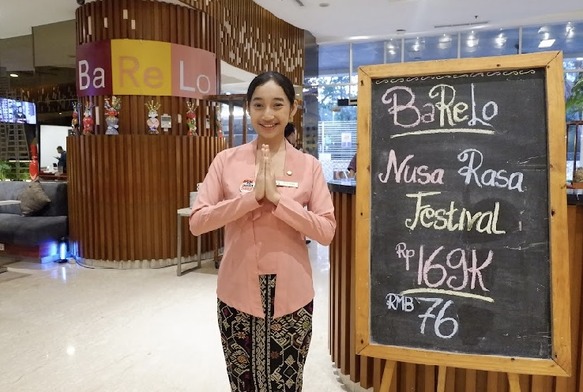 BaReLo
BaReLo
Nusa Rasa
Festival
Rp 169K
RMB 76